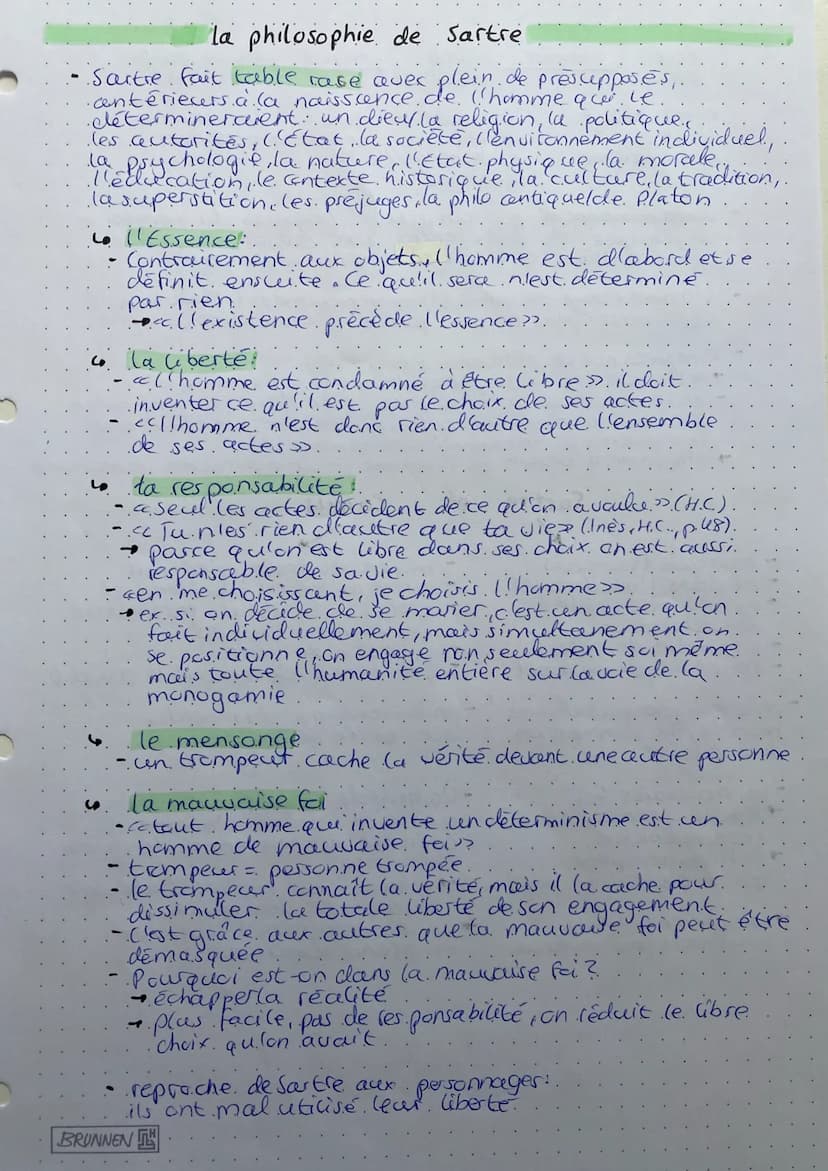 la philosophie de Sartre
- Sartre fait table rase avec plein de présupposés,
antérieurs à la naissance de l'homme qui le
détermineraient: un dieu/la religion, la politique,
les autorités, l'État, la société, l'environnement individuel,
la psychologie, la nature, l'état physique, la morale,
l'éducation, le contexte historique, la culture, la tradition,
la superstition, les préjugés, la philo antique/de Platon
↳ l'Essence:
- Contrairement aux objets, l'homme est d'abord et se
définit ensuite. Ce qu'il sera n'est déterminé
par rien
→ «l'existence précède l'essence».
↳ la liberté:
- «l'homme est condamné à être libre». il doit
inventer ce qu'il est par le choix de ses actes.
- «l'homme n'est donc rien d'autre que l'ensemble
de ses actes».
↳ la responsabilité:
- «seul les actes décident de ce qu'on a voulu». (H.C).
- «Tu n'es rien d'autre que ta vie» (Inès, H.C., p.48).
→ parce qu'on est libre dans ses choix on est aussi
responsable de sa vie.
- «en me choisissant, je choisis l'homme»
→ ex. si on décide de se marier, c'est un acte qu'on
fait individuellement, mais simultanement on
se positionne, on engage non seulement soi même
mais toute l'humanité entière sur la voie de la
monogamie
↳ le mensonge
- un trompeur cache la vérité devant une autre personne
↳ la mauvaise foi
- «tout homme qui invente un déterminisme est un
homme de mauvaise foi»
- trompeur = personne trompée
- le trompeur connaît la vérité, mais il la cache pour
dissimuler la totale liberté de son engagement
- C'est grâce aux autres que la mauvaise foi peut être
démasquée
- Pourquoi est-on dans la mauvaise foi?
→ échapper la réalité
→ plus facile, pas de responsabilité, on réduit le libre
choix qu'on avait
• reproche de Sartre aux personnages:
ils ont mal utilisé leur liberté
BRUNNEN